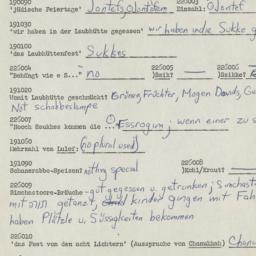 190090 225003
'Jüdische Feiertage' Jontef, Jontöfem Einzahl: Jontef
191030
'wir haben in der Laubhütte gegessen' wir haben in die Sukke g
190100
'das Laubhüttenfest' Sukkes
225004 225005 225006
"Behüngt wie e S..." no Seik? Sukke?
191020
Womit Laubhütte geschmückt? Grünes, Früchter, Mogen Dovids, Gu
Not schabbeslampe
225007
"Nooch Sukkes kümmen die ... Essrogim; wenn einer zu s
191060
Mehrzahl von Luler: (no plural used)
191090 225008
Schanerabbe-Speisen? nothing special Kohl/Kraut?
225009
Simchestoore-Bräuche - gut gegessen u. getrunken; Simchasto
mit תורה getanzt, kinder gungen mit Fah
haben Plätzle u. Süssigkeiten bekommen
225010
'das Fest von den acht Lichtern' (Aussprache von Chanukkah) Chanu